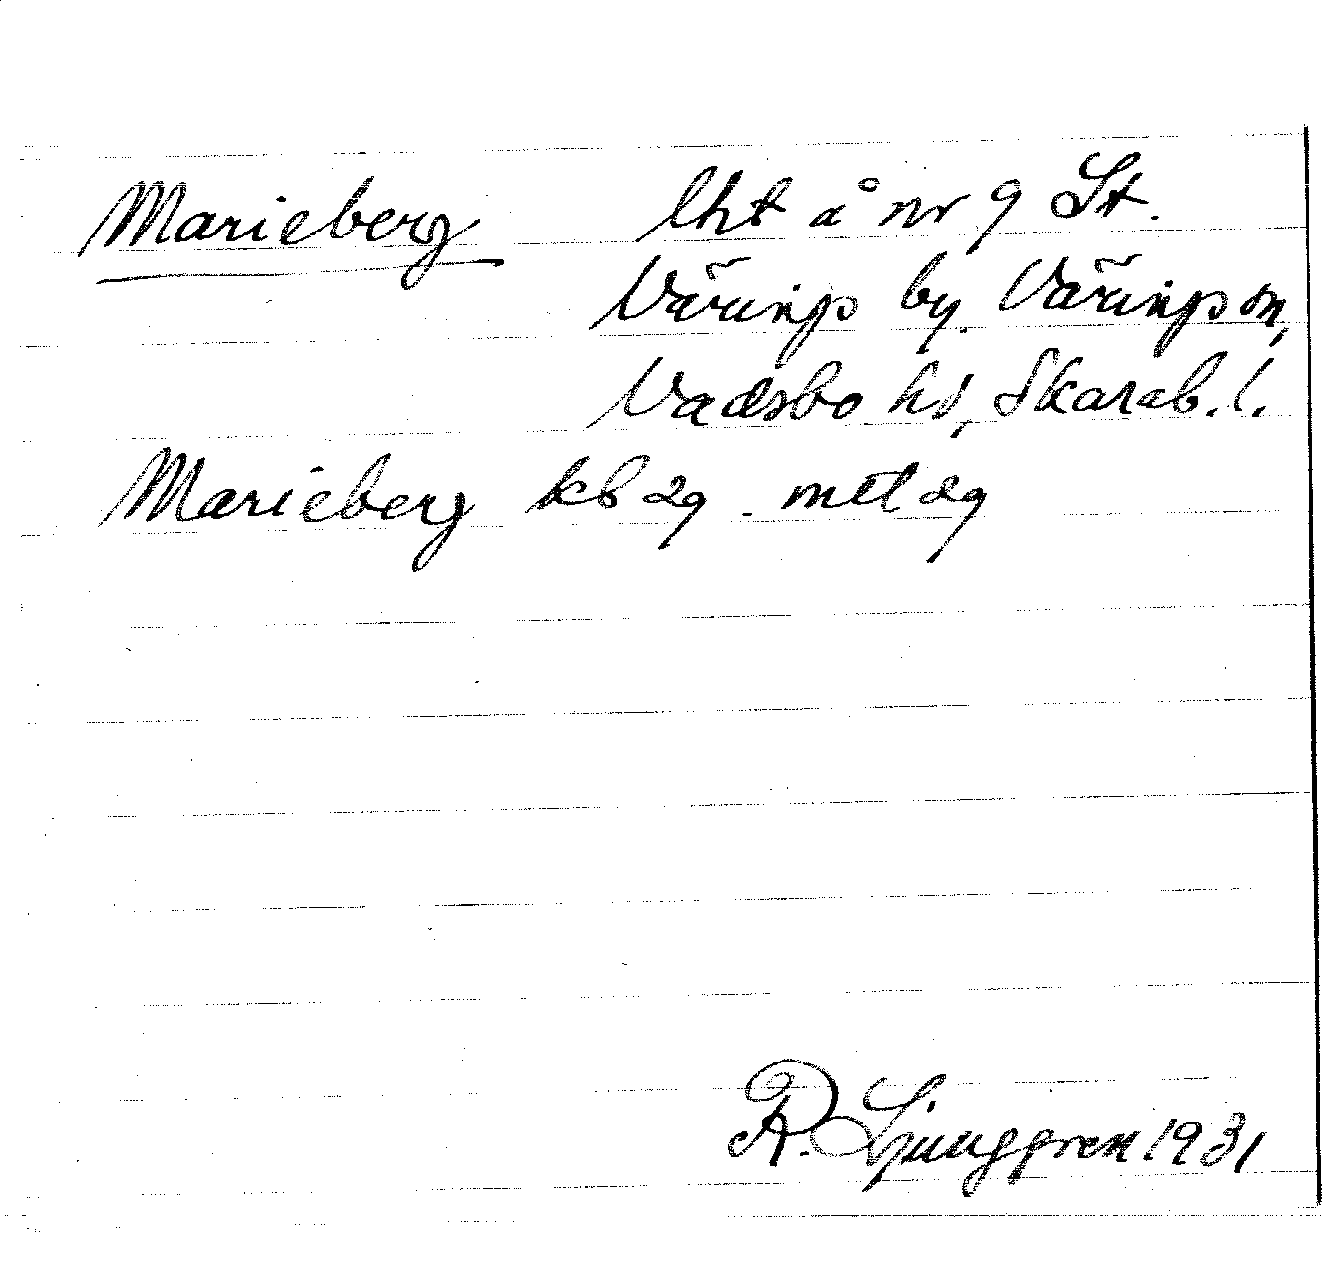 Marieberg lht å nr 9 St.
Värings by. Värings sn,
Vadsbo hd, Skarab. l.
Marieberg kb 29 mtl 29
R. Ljunggren 1931